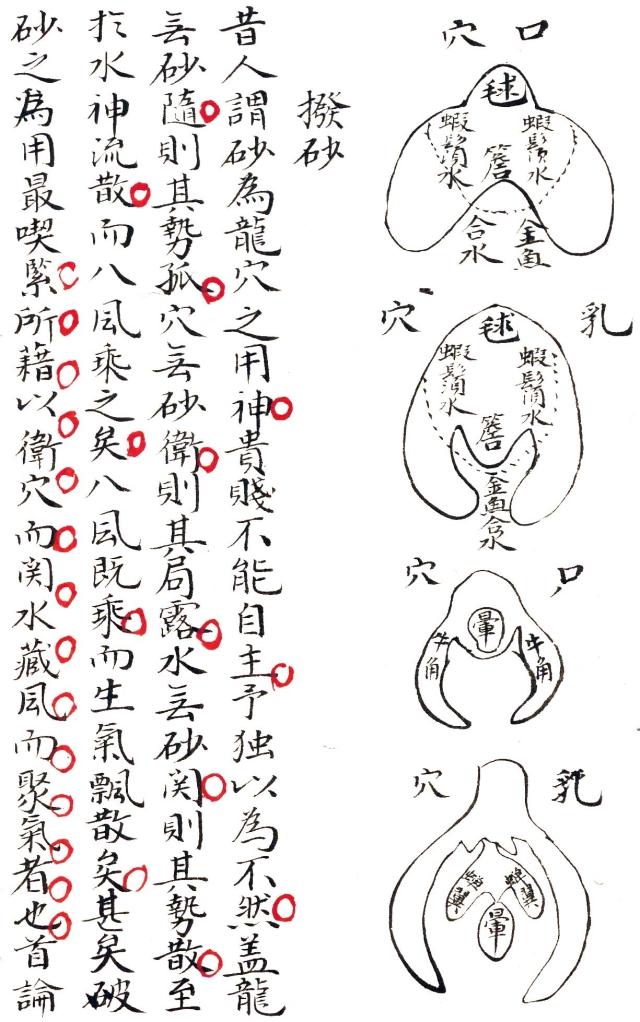 口穴
毬
蝦鬚水
蝦鬚水
簷
金魚
合水
乳穴
毬
蝦鬚水
蝦鬚水
簷
金魚合水
口穴
暈
牛角
牛角
乳穴
蟬翼
蟬翼
暈
撥砂
昔人謂砂為龍穴之用神貴賤不能自主予独以為不然盖龍
無砂隨則其勢孤穴無砂衛則其局露水無砂関則其勢散至
扵水神流散而八風乘之矣八風既乘而生氣飄散矣甚矣破
砂之為用最喫緊所藉以衛穴而関水藏風而聚氣者也首論